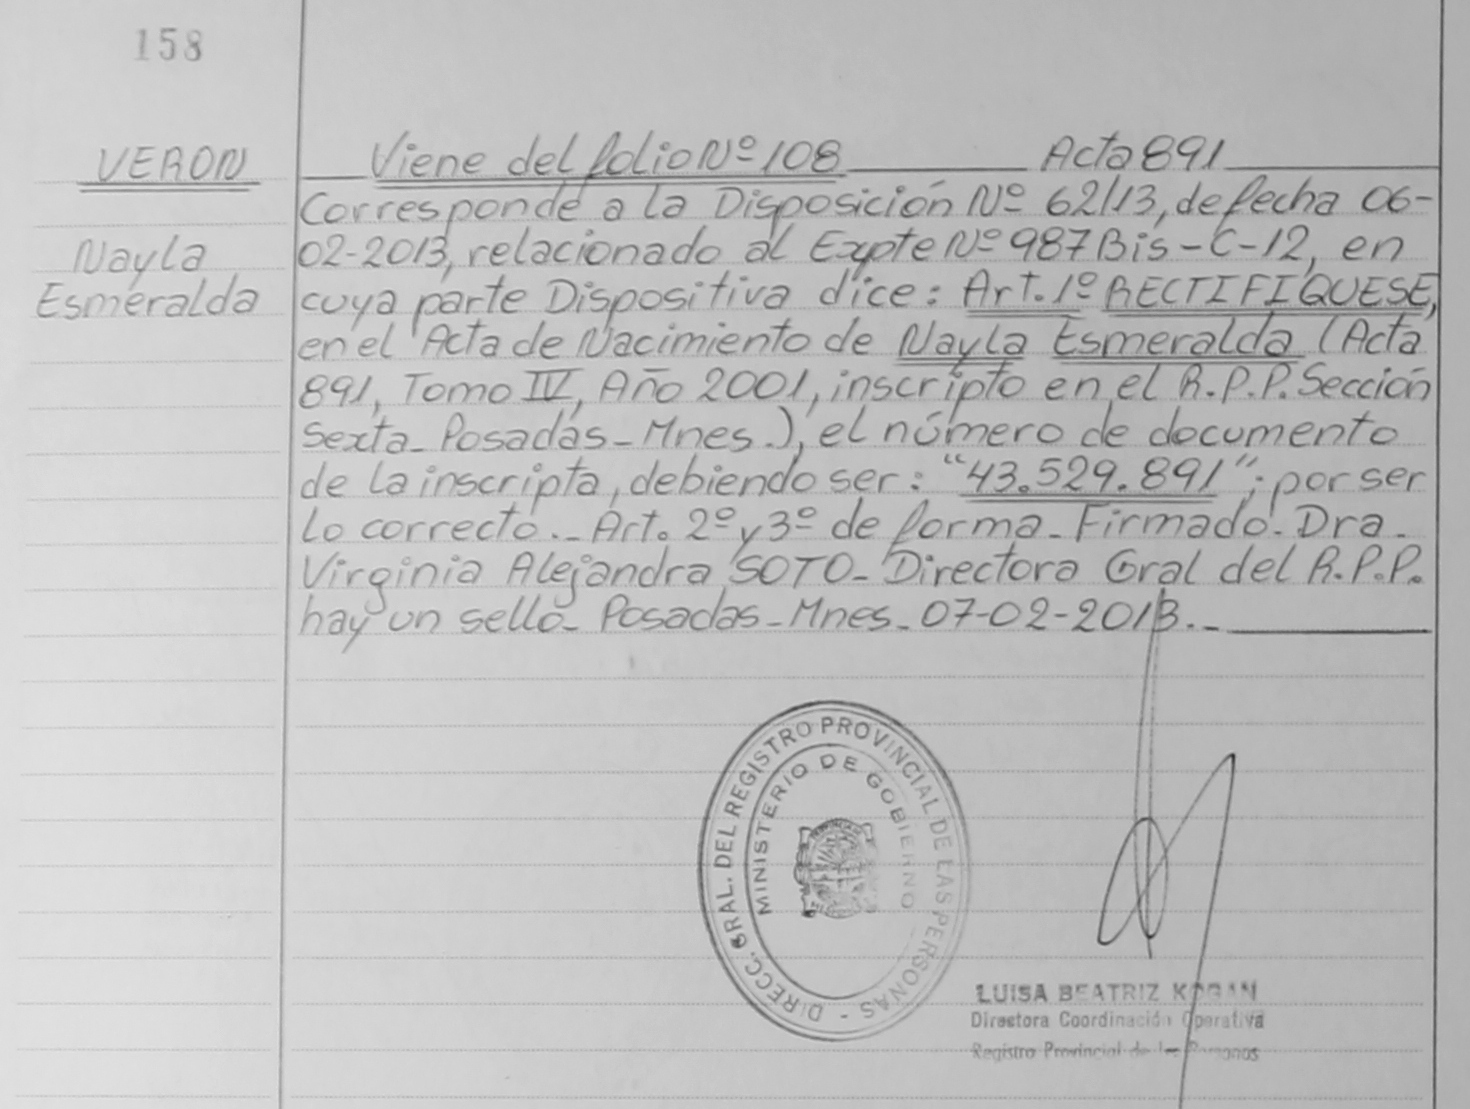 158
VERON
Nayla
Esmeralda
Viene del folio Nº 108 Acta 891
Corresponde a la Disposición Nº 62/13, de fecha 06-
02-2013, relacionado al Expte Nº 987 Bis-C-12, en
cuya parte Dispositiva dice: Art. 1º RECTIFIQUESE,
en el Acta de Nacimiento de Nayla Esmeralda (Acta
891, Tomo IV, Año 2001, inscripto en el R.P.P. Sección
Sexta_ Posadas_Mnes.), el número de documento
de la inscripta, debiendo ser: "43.529.891"; por ser
lo correcto._ Art. 2º y 3º de forma_ Firmado. Dra.
Virginia Alejandra SOTO_ Directora Gral del R.P.P.
hay un sello_ Posadas_Mnes_ 07-02-2013._
DIRECC. GRAL. DEL REGISTRO PROVINCIAL DE LAS PERSONAS -
MINISTERIO DE GOBIERNO
LUISA BEATRIZ KOGAN
Directora Coordinación Operativa
Registro Provincial de las Personas